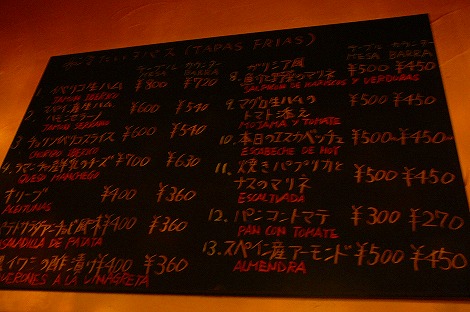 (TAPAS FRIAS)
テーブル カウンター
MESA BARRA
1. イベリコ生ハム ¥800 ¥720
JAMON IBERICO
ハモンセラーノ ¥600 ¥540
JAMON SERRANO
3. チョリソスライス ¥600 ¥540
CHORIZO
¥700 ¥630
QUESO MANCHEGO
オリーブ ¥400 ¥360
ACEITUNAS
¥400 ¥360
ENSALADILLA DE PATATA
イワシの酢漬け ¥400 ¥360
A LA VINAGRETA
テーブル カウンター
MESA BARRA
8. ガリシア風
のマリネ ¥500 ¥450
SALPICON DE MARISCOS Y VERDURAS
9. マグロ生ハムの
トマト添え ¥500 ¥450
Y TOMATE
10. 本日のエスカベッチェ ¥500 ¥450
ESCABECHE DE HOY
11. 焼きパプリカと
ナスのマリネ ¥500 ¥450
ESCALIVADA
12. パンコントマテ ¥300 ¥270
PAN CON TOMATE
13. スペイン産アーモンド ¥500 ¥450
ALMENDRA